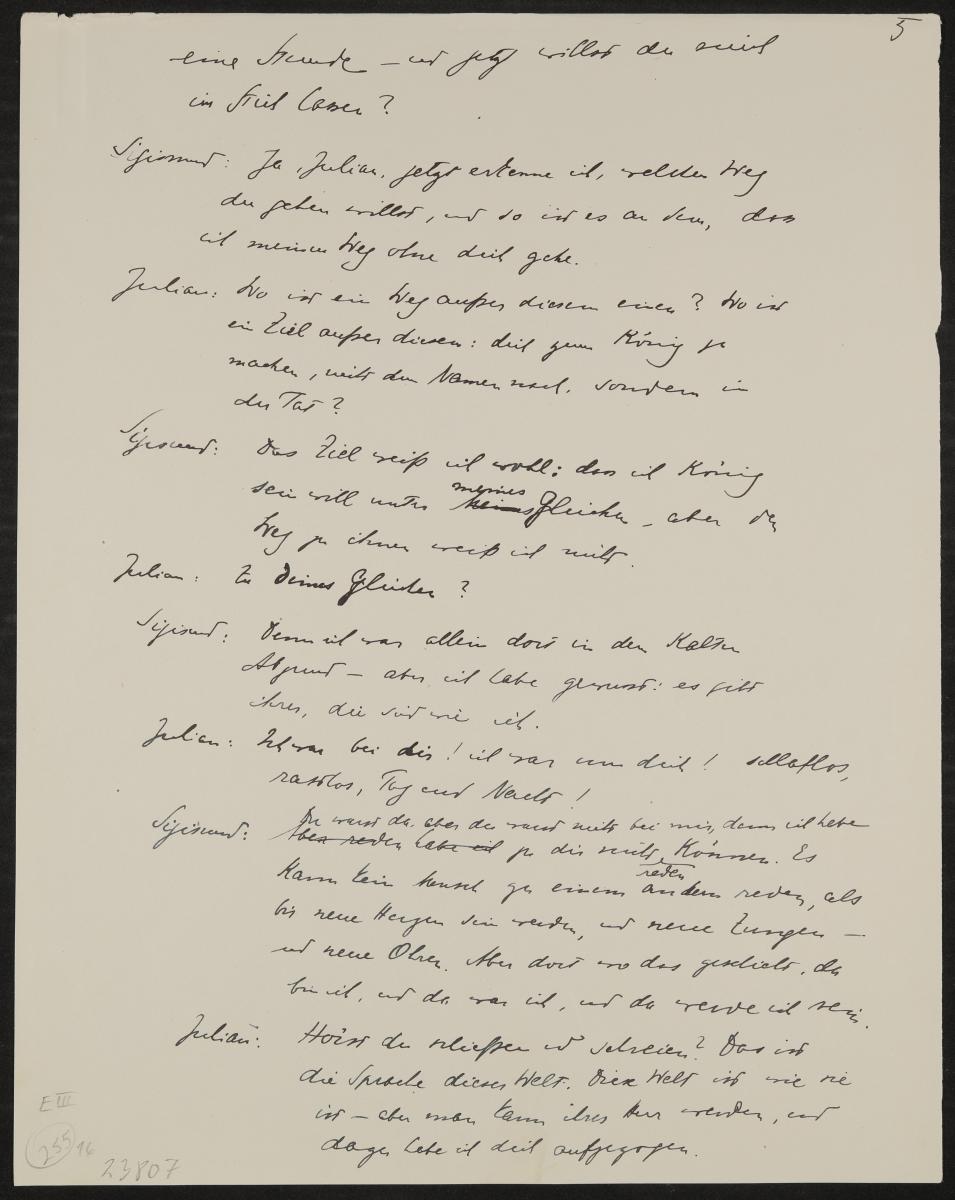 5
eine Stunde – und jetzt willst du mich
im Stich lassen?
Sigismund: Ja, Julian, jetzt erkenne ich, welchen Weg
du gehen willst, und so ist es an dem, dass
ich meinen Weg ohne dich gehe.
Julian: Wo ist ein Weg außer diesem einen? Wo ist
ein Ziel außer diesem: dich zum König zu
machen, nicht dem Namen nach, sondern in
der Tat?
Sigismund: Das Ziel weiß ich wohl: dass ich König
meines
sein will unter Gleichen – aber den
Weg zu ihnen weiß ich nicht.
Julian: Zu Deines Gleichen?
Sigismund: Denn ich war allein dort in dem Kalten
Abgrund – aber ich habe gewusst: es gibt
ihrer, die sind wie ich.
Julian: Ich war bei dir! ich war um dich! schlaflos,
rastlos, Tag und Nacht!
Du warst da, aber du warst nicht bei mir, denn ich habe
Sigismund: Aber reden habe ich zu dir nicht Können. Es
reden
Kann kein Mensch zu einem andern reden, als
bis neue Herzen sein werden, und neue Zungen –
und neue Ohren. Aber dort wo das geschieht, da
bin ich, und da war ich, und da werde ich sein.
Julian: Hörst du schießen u schreien? Das ist
die Sprache dieser Welt. Diese Welt ist wie sie
ist – aber man kann ihrer Herr werden, und
dazu habe ich dich aufgezogen.
E III
255 16
23807